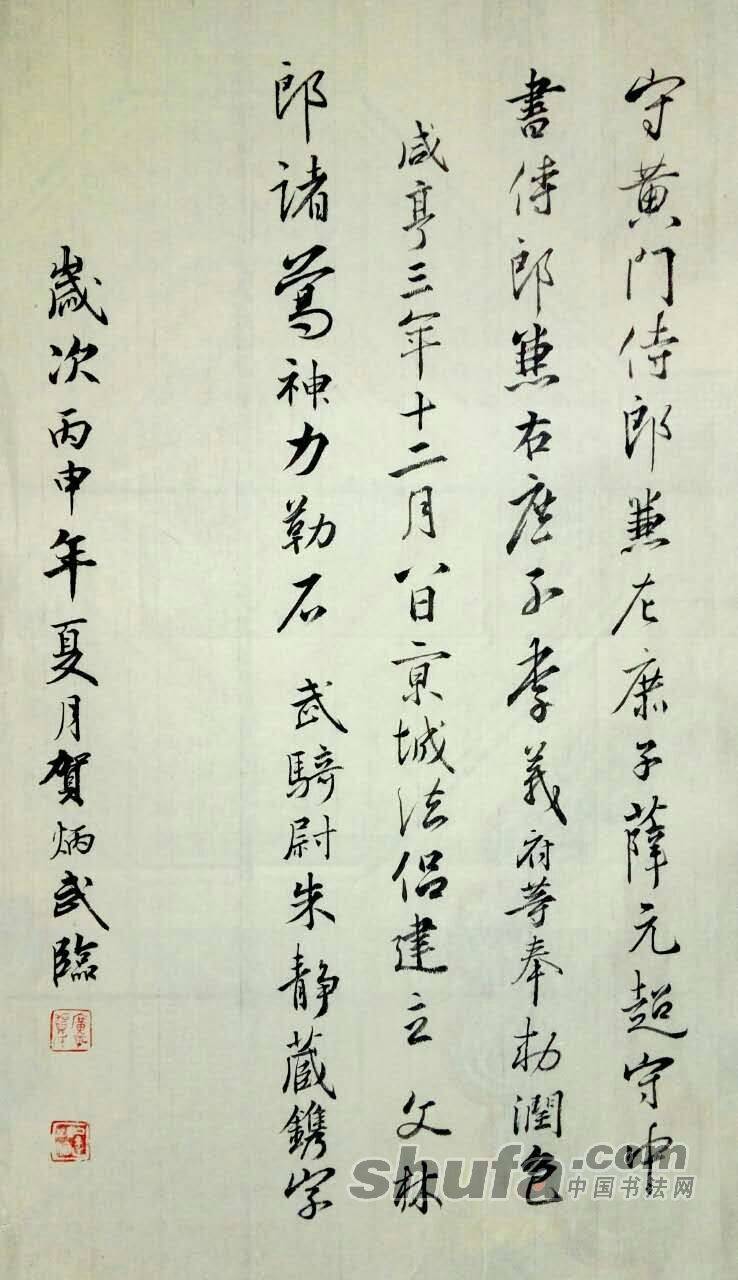 守黄門侍郎兼左庶子薛元超守中
書侍郎兼右庶子李義府等奉勑潤色
咸亨三年十二月八日京城法侶建立 文林
郎諸葛神力勒石 武騎尉朱静藏鐫字
歲次丙申年夏月賀炳武臨
shufa.com
中国书法网